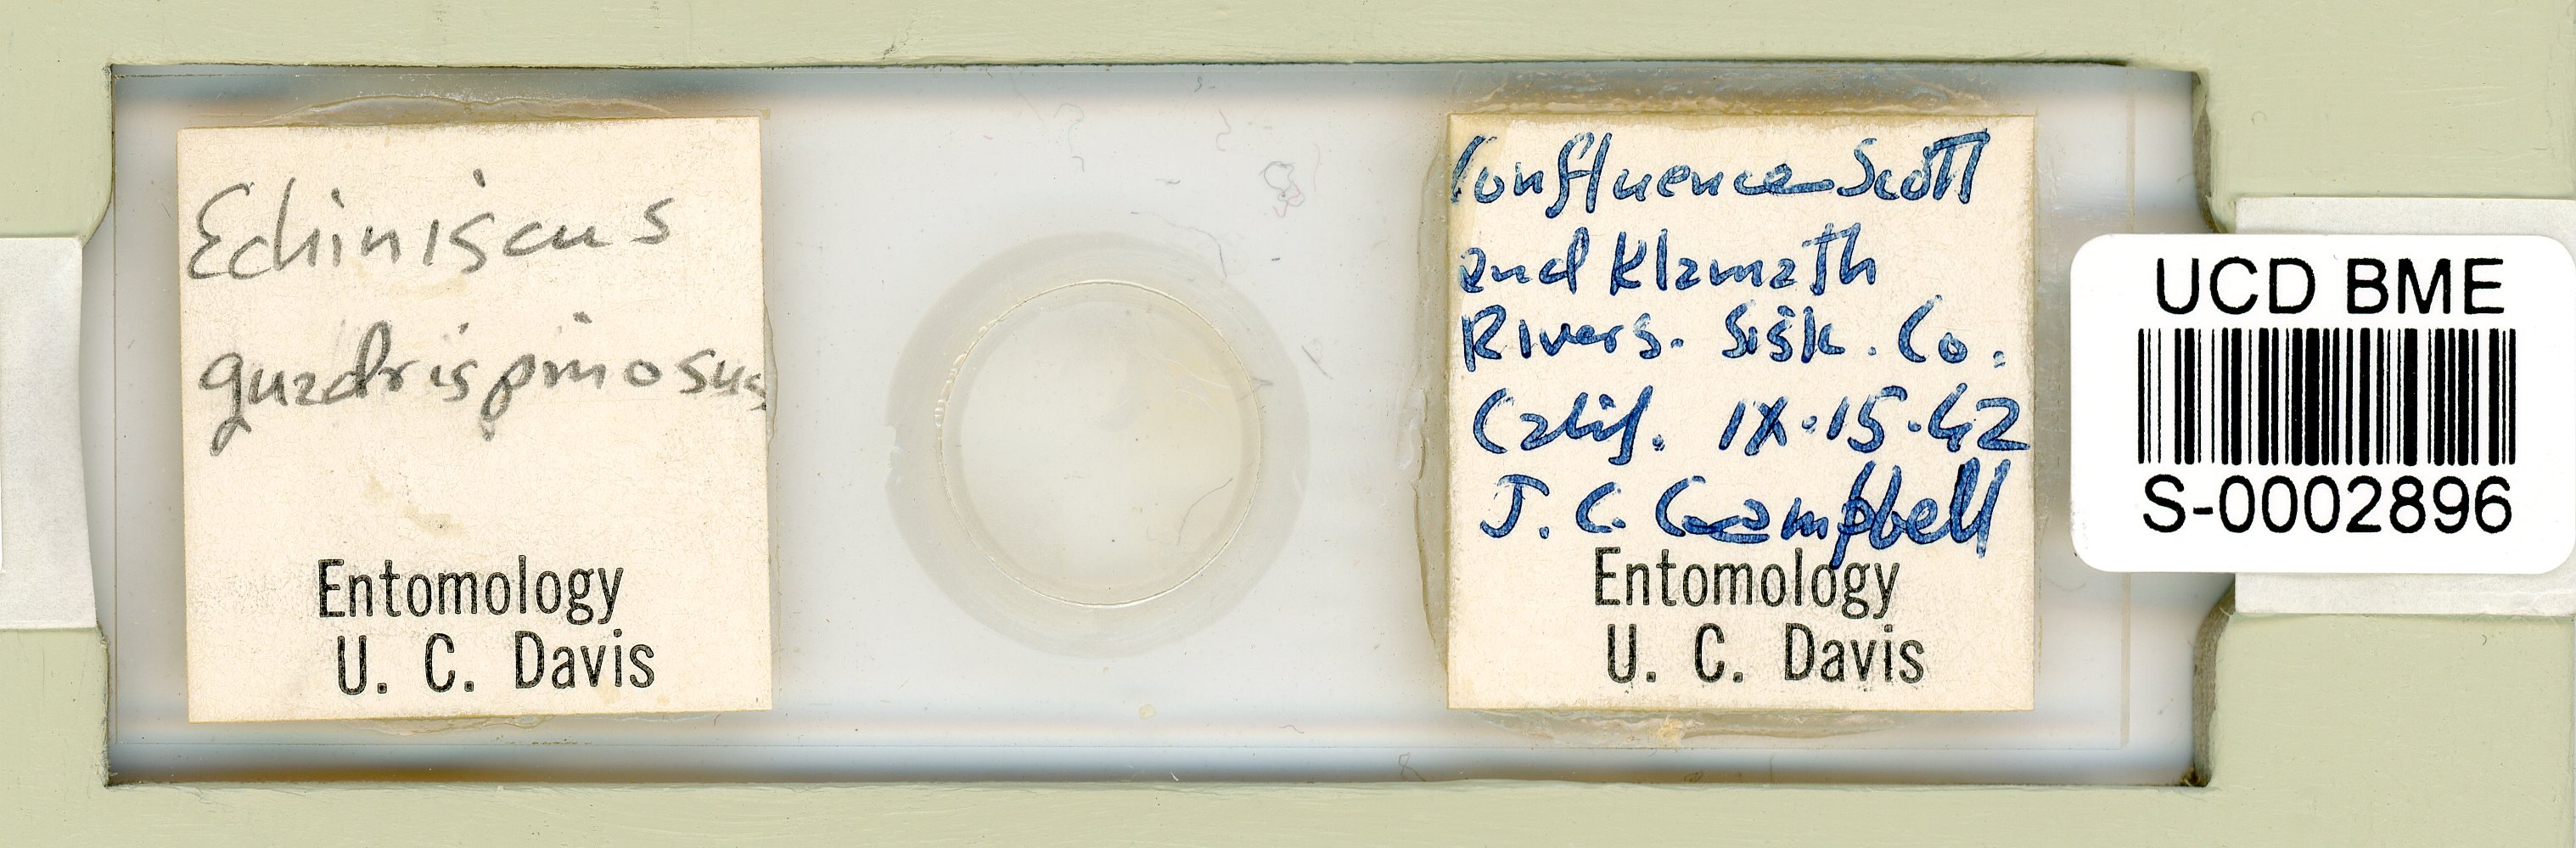 Echiniscus
quadrispinosus
Entomology
U. C. Davis
Confluence Scott
and Klamath
Rivers. Sisk. Co.
Calif. IX.15.42
J. C. Campbell
Entomology
U. C. Davis
UCD BME
S-0002896